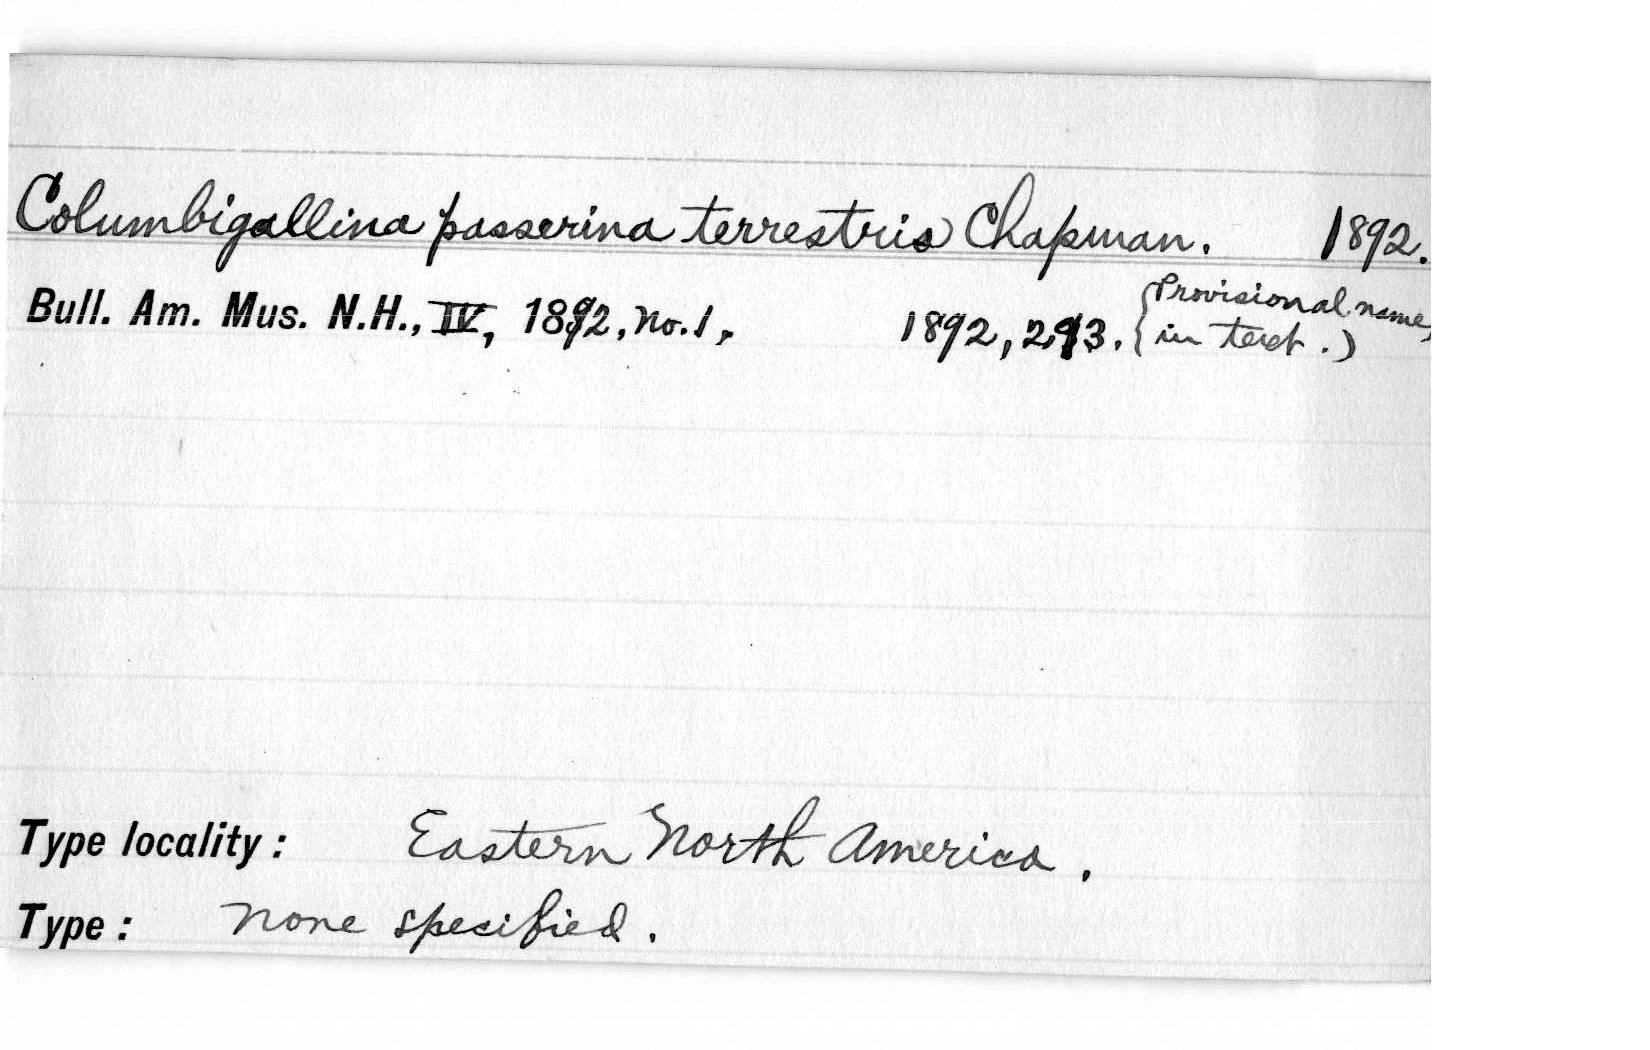 Columbigallina passerina terrestris Chapman. 1892.
Bull. Am. Mus. N.H., IV, 1892, No. 1, 1892, 293. (Provisional name,
in text.)
Type locality: Eastern North America.
Type: None specified.